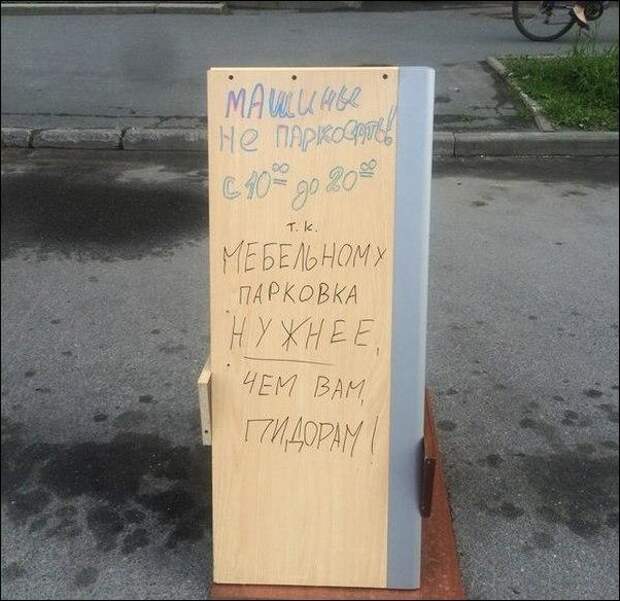 МАШИНЫ
Не ПАРКОВАТЬ!
с 10⁰⁰ до 20⁰⁰
т.к.
МЕБЕЛЬНОМУ
ПАРКОВКА
НУЖНЕЕ,
ЧЕМ ВАМ,
ПИДОРАМ!